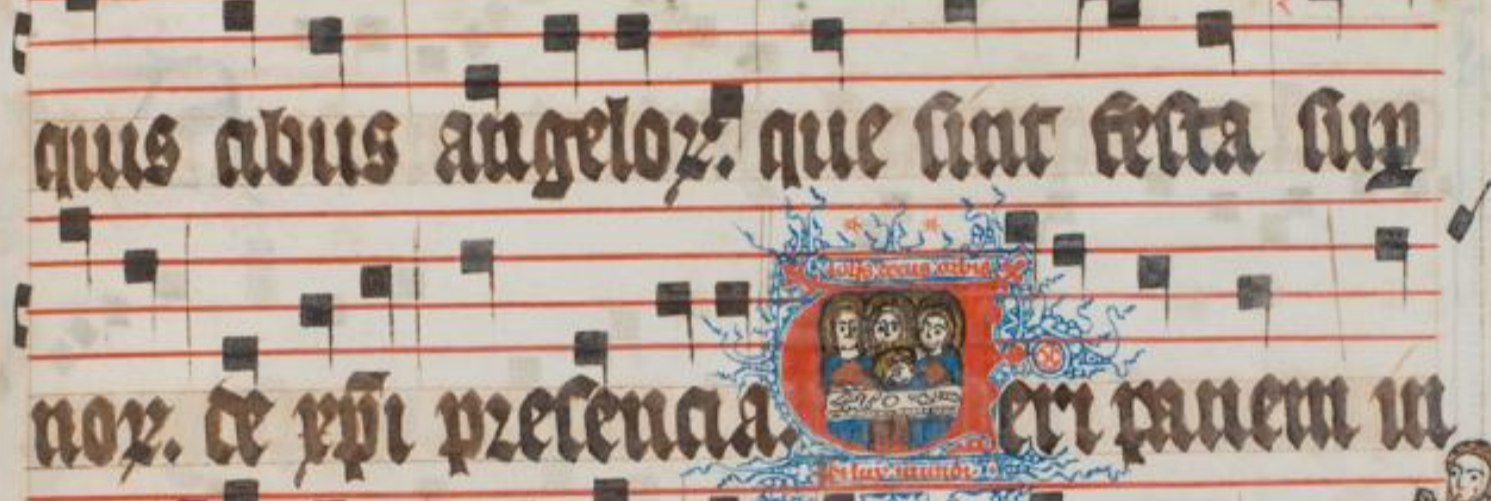 quis cibus angeloꝝ. que sint festa suꝑ
noꝝ. de xp̄i presencia. Veri panem in